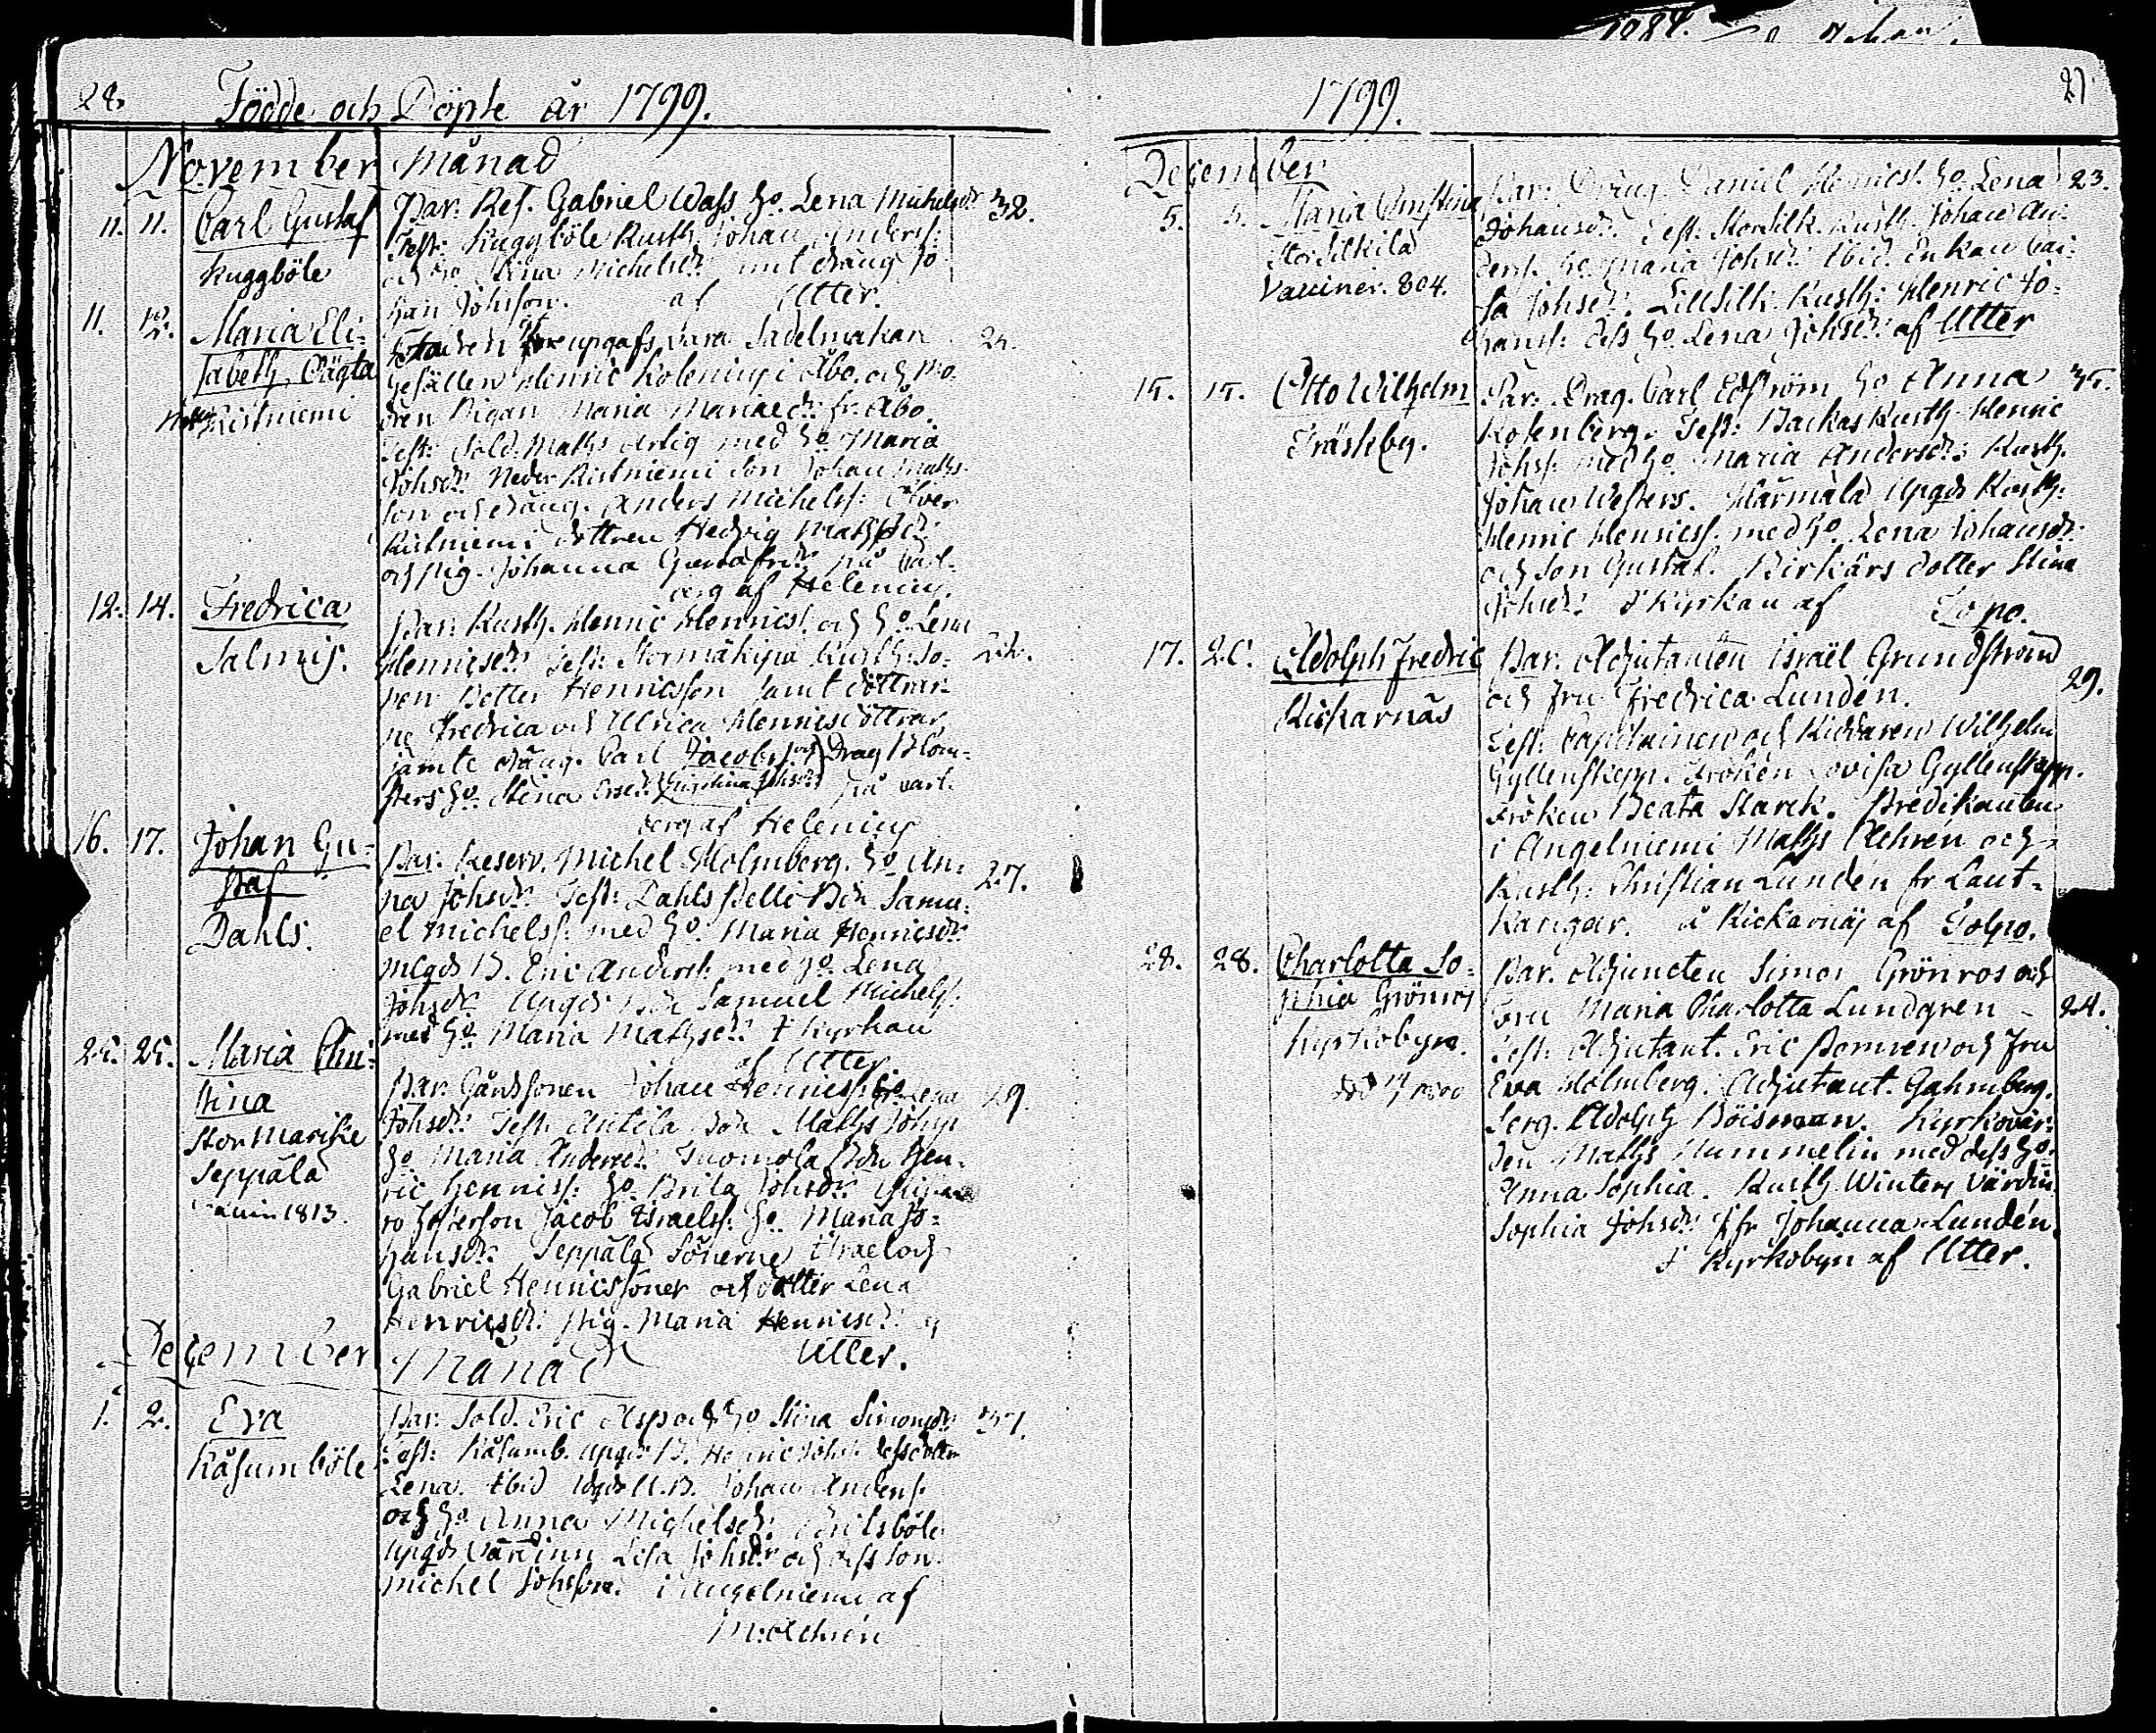 28.
Födde och Döpte år 1799.
November Månad
11. 11. Carl Gustaf
Kuggböle
Par: Res. Gabriel Wass h:o Lena Michelsdr 32.
Test: Kuggböle Rusth. Johan Anderss:
och h:o Stina Michelsdr: samt dräng Jo-
han Johsson. af Utter.
11. 12. Maria Eli-
sabeth, Oägta
Ristniemi
Fadren uppgafs vara Sadelmakar
Gesällen Henric Kolenius i Åbo. och Mo-
dren Pigan Maria Mariaedr: fr. Åbo.
Test: Sold. Maths Artig med h:o Maria
Johsdr: Neder Ristniemi Son Johan Maths-
son och dräng. Anders Michelss: Öfver
Ristniemi dottren Hedvig Mathsdr:
och pig. Johanna Gustafsdr på Carl-
berg af Helenius.
12. 14. Fredrica
Salmis.
Par: Rusth. Henric Henricss. och h:o Lena
Henricsdr: Test: Stormäkipä Rusth: So-
nen Petter Henricsson samt döttrar-
ne Fredrica och Ulrica Henricsdöttrar,
jämte dräng. Carl Jacobss. och Drag Blom-
sters h:o Stina Ersdr: på Carl-
berg af Helenius
16. 17. Johan Gu-
staf
Dahls.
Par: Reserv. Michel Holmberg. h:o An-
na Johsdr: Test: Dahls Pelli Bdn Samu-
el Michelss: med h:o Maria Henricsdr: 27.
B. Eric Anderss. med h:o Lena
Johsdr: Upgds Bdn Samuel Michelss:
med h:o Maria Mathsdr: I Kyrkan
af Utter
25. 25. Maria Chri-
stina
Stor Marifke
Seppälä
1813.
Par: Gårdssonen Johan Henricss: h:o Lena
Johsdr: Test: Antila Bdn Maths Johss 29.
h:o Maria Andersdr: Tuomola Bdn Hen-
ric Henricss: h:o Brita Johsdr:
Jacob Israelss: h:o Maria Jo-
hansdr: Seppälä Sönerne Israel och
Gabriel Henricssöner och dotter Lena
Henricsdr: Pig. Maria Henricsdr: af
Utter.
December Månad
1. 2. Eva
Kåsumböle
Par: Sold. Eric Asp och h:o Stina Simonsdr: 37.
Test: Kåsumb. Upgds B. Henric Johss. dess dotter
Lena. Ibid Johan Anderss.
och h:o Anna Michelsdr:
Upgds Värdinn Lisa Johsdr och dess Son
Michel Johsson. i Angelniemi af
M: Aehrén
1799.
27
December
5. 5. Maria Christina
Storsilkilä
804.
Par: Dräng Daniel Henricss. h:o Lena 23.
Johansdr: Test: Storsilk. Rusth. Johan An-
derss. h:o Maria Johsdr: Ibid. Enkan Cai-
sa Johsdr: Lillsilk. Rusth: Henric Jo-
hanss: dess h:o Lena Johsdr: af Utter
15. 15. Otto Wilhelm
Träskby.
Par: Drag. Carl Edström h:o Anna 35.
Rosenberg. Test: Backas Rusth. Henric
Johss: med h:o Maria Andersdr: Rusth.
Johan Westers. Härmälä Upgds Rusth:
Henric Henricss. med h:o Lena Johansdr:
och Son Gustaf. Birkärs dotter Stina
Johsdr: I Kyrkan af Tolpo.
17. 20. Adolph Fredric
Rickarnäs
Par: Adjutanten Israël Grundström
och Fru Fredrica Lundén. 29.
Test: Capitainen och Riddaren Wilhelm
Gyllenskepp. Fröken Lovisa Gyllenskepp.
Fröken Beata Starck. Predikanten
i Angelniemi Maths Aehren och
Rusth: Christian Lundén fr Laut-
kangar. å Rickarnäs af Tolpo.
28. 28. Charlotta So-
phia Grönros
Kyrkobyn.
Par: Adjuncten Simon Grönros och
Fru Maria Charlotta Lundgren - 24.
Test: Adjutant. Eric och Fru
Eva Holmberg. Adjutant. Gahmberg.
Serg. Adolph Böisman. Kyrkovär-
den Maths Hummelin med dess h:o
Anna Sophia. Rusth. Winters Värdin
Sophia Johsdr: Jfr Johanna Lundén.
I Kyrkobyn af Utter.